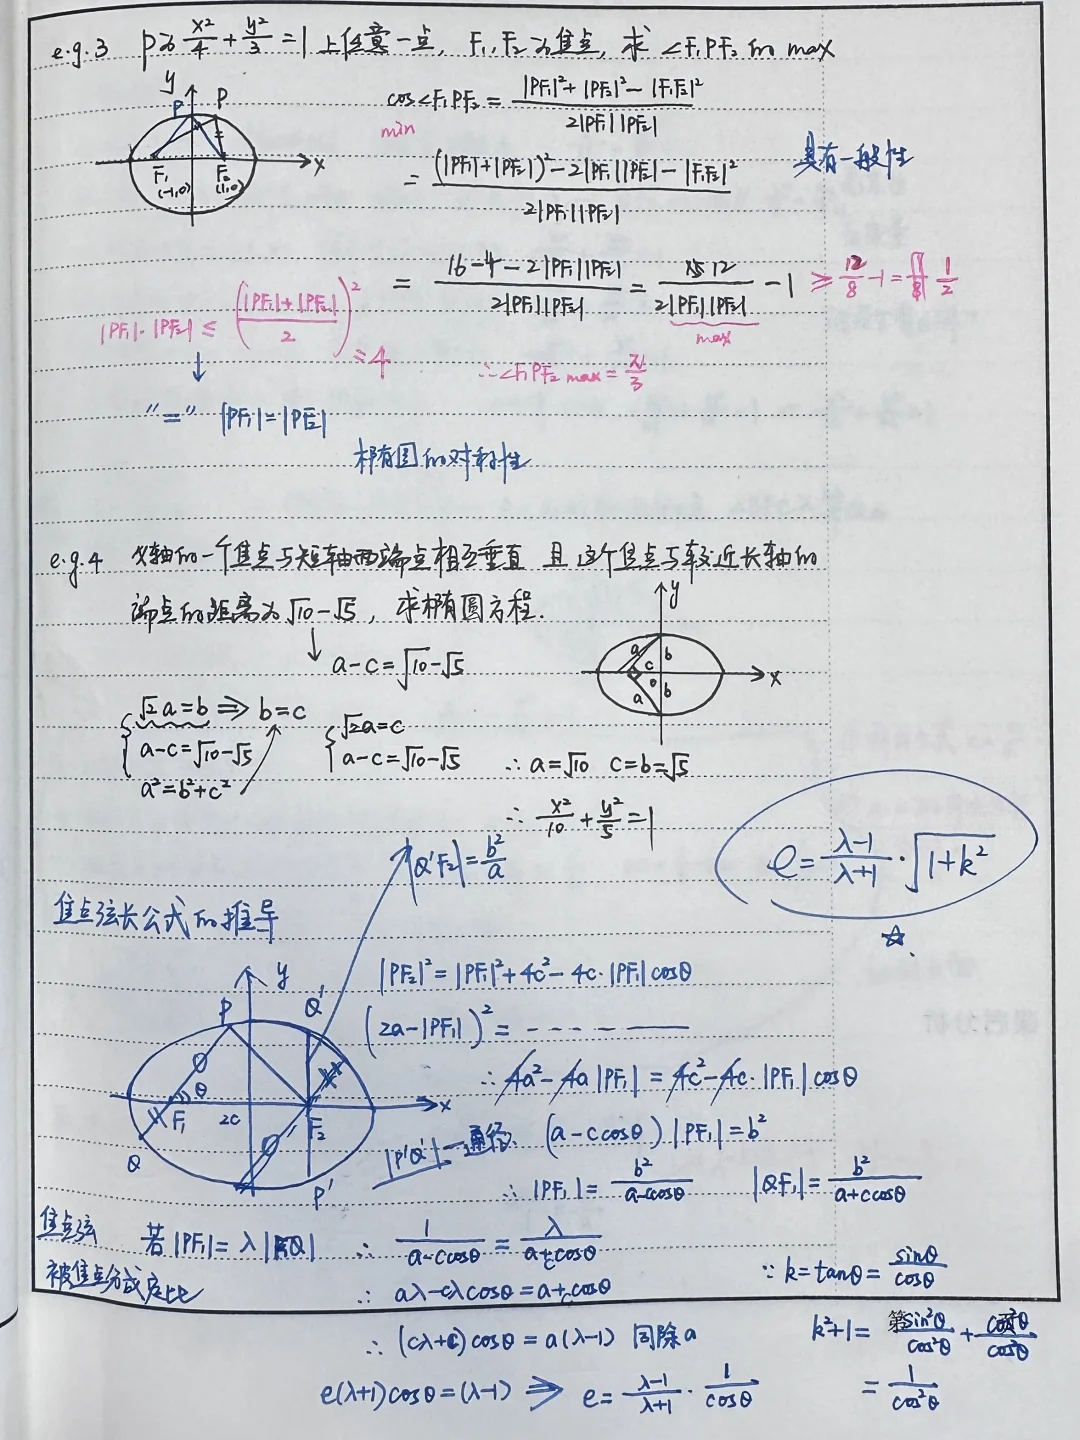 e.g.3 P为 x²/4 + y²/3 = 1 上任意一点, F₁, F₂为焦点, 求 ∠F₁PF₂ 的 max
y P P x F₁ (-1,0) F₂ (1,0)
cos∠F₁PF₂ = (|PF₁|²+|PF₂|²-|F₁F₂|²)/(2|PF₁||PF₂|)
min
= ((|PF₁|+|PF₂|)²-2|PF₁||PF₂|-|F₁F₂|²)/(2|PF₁||PF₂|)
具有一般性
= (16-4-2|PF₁||PF₂|)/(2|PF₁||PF₂|) = 12/(2|PF₁||PF₂|) - 1 ≥ 12/8 - 1 = 1/2
max
|PF₁|·|PF₂| ≤ ((|PF₁|+|PF₂|)/2)² = 4
∴∠F₁PF₂ max = π/3
↓
"=" |PF₁|=|PF₂|
椭圆的对称性
e.g.4 X轴的一个焦点与短轴两端点相互垂直 且这个焦点与较近长轴的
端点的距离为√10-√5, 求椭圆方程.
↓ a-c=√10-√5
y x a b c o a b
{ √2a=b ⇒ b=c
a-c=√10-√5
a²=b²+c²
{ √2a=c
a-c=√10-√5
∴ a=√10 c=b=√5
∴ x²/10 + y²/5 = 1
|Q'F₂| = b²/a
e = (λ-1)/(λ+1) · √(1+k²)
☆
焦点弦长公式的推导
y P Q' θ F₁ 2c F₂ x Q P'
|PF₂|² = |PF₁|²+4c²-4c·|PF₁|cosθ
(2a-|PF₁|)² = - - - - - -
∴ 4a²-4a|PF₁| = 4c²-4c·|PF₁|cosθ
|P'Q'|—通径
(a-ccosθ)|PF₁|=b²
∴ |PF₁| = b²/(a-ccosθ) |QF₁| = b²/(a+ccosθ)
焦点弦
被焦点分成定比
若|PF₁|=λ|F₁Q| ∴ 1/(a-ccosθ) = λ/(a+ccosθ)
∴ aλ-cλcosθ=a+ccosθ
∵ k=tanθ= sinθ/cosθ
∴ (cλ+c)cosθ=a(λ-1) 同除a
k²+1= sin²θ/cos²θ + cos²θ/cos²θ
e(λ+1)cosθ=(λ-1) ⇒ e= (λ-1)/(λ+1) · 1/cosθ
= 1/cos²θ